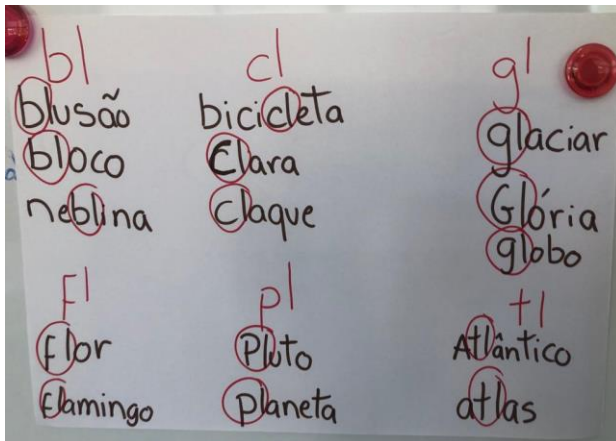 bl
blusão
bloco
neblina
cl
bicicleta
Clara
claque
gl
glaciar
Glória
globo
fl
flor
flamingo
pl
Pluto
planeta
tl
Atlântico
atlas